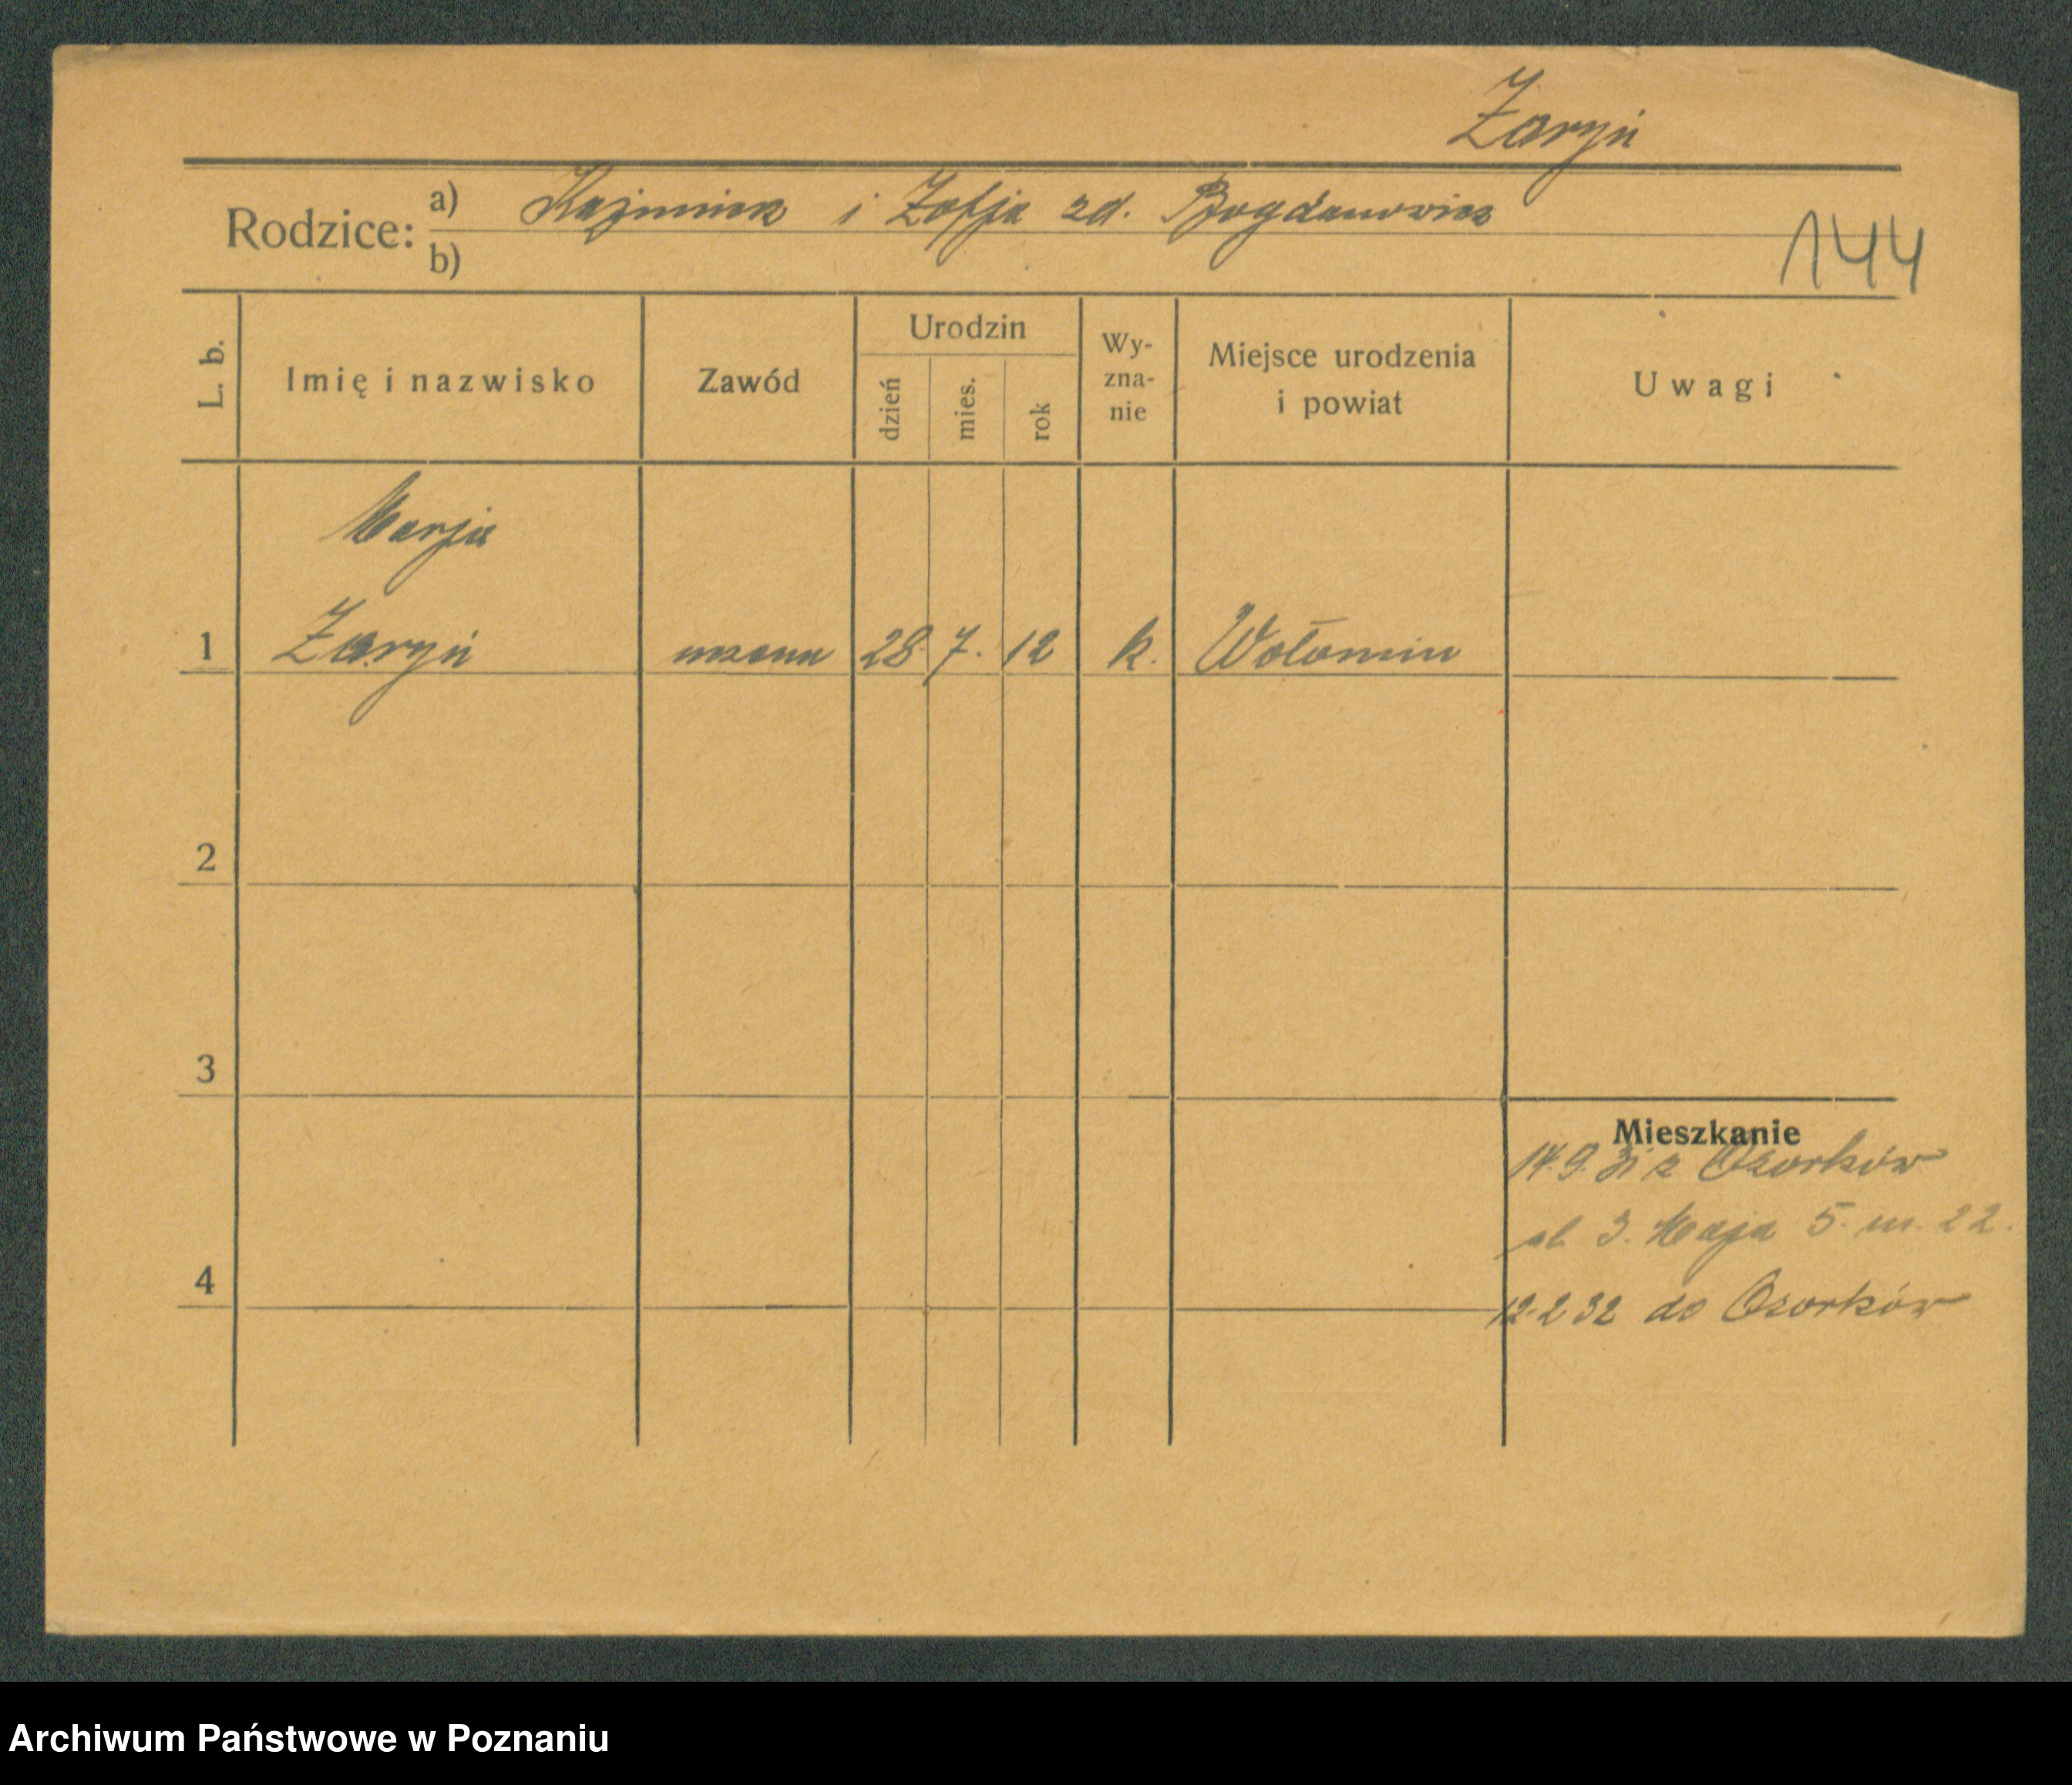 Żaryń
Rodzice: a) Kazimierz i Zofja zd. Bogdanowicz
b)
144
L. b. Imię i nazwisko Zawód Urodzin dzień mies. rok Wy-zna-nie Miejsce urodzenia i powiat Uwagi
Marja
1 Żaryń uczenn 28. 7. 12 k. Wołomin
2
3
Mieszkanie
14.9.31 z Ozorków
ul. 3. Maja 5. m. 22.
4
12.2 32 do Ozorków
Archiwum Państwowe w Poznaniu